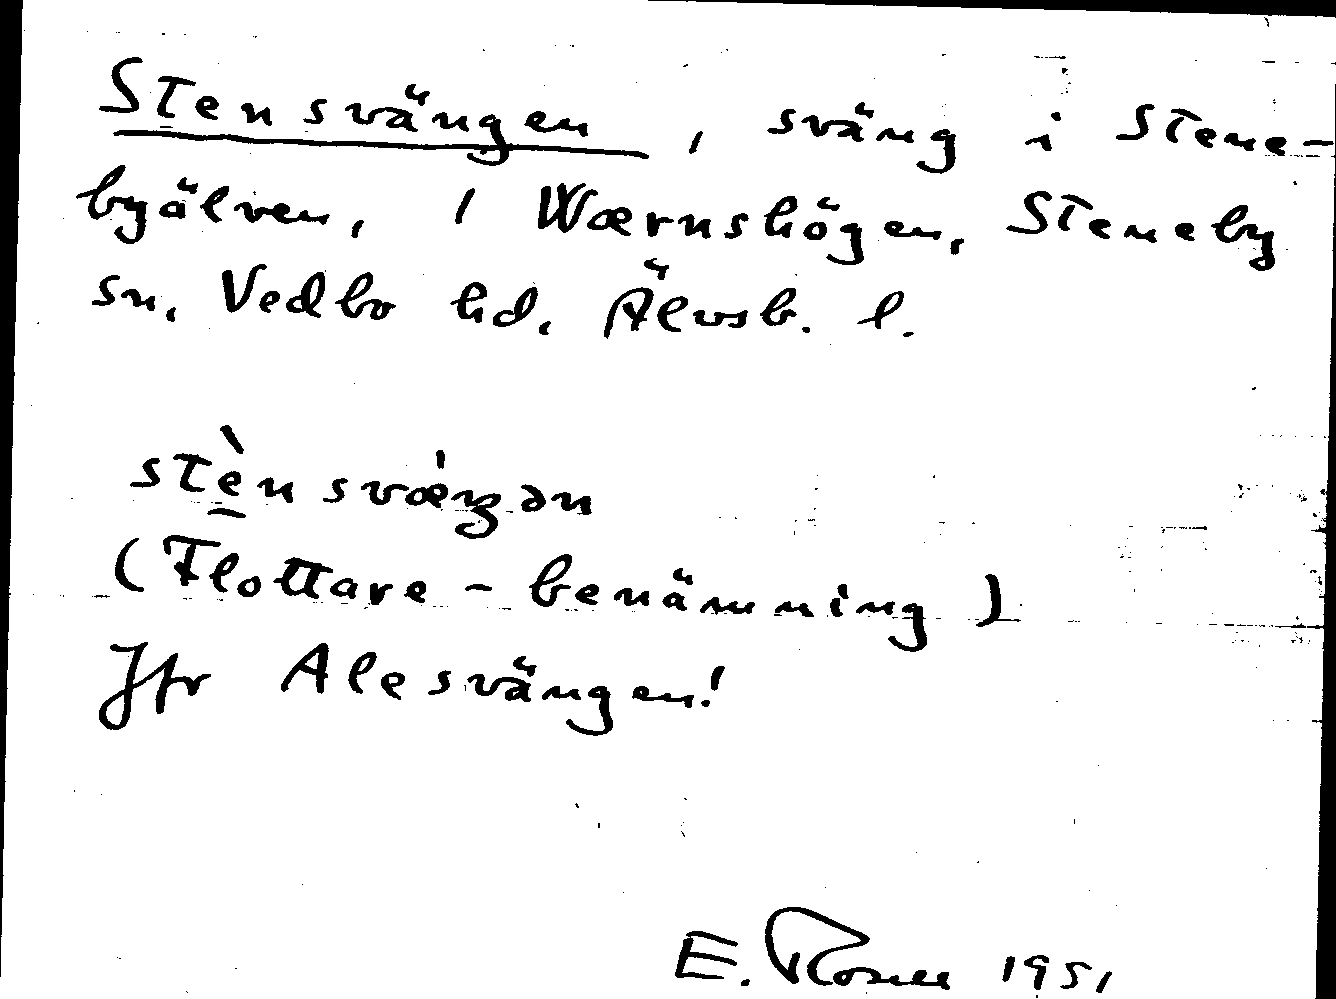 Stensvängen, sväng i Stene-
byälven, 1 Wærnshögen, Steneby
sn, Vedbo hd, Älvsb. l.
stè̱nsvæ̀ŋən
(Flottare-benämning)
Jfr Alesvängen!
E. Rosell 1951